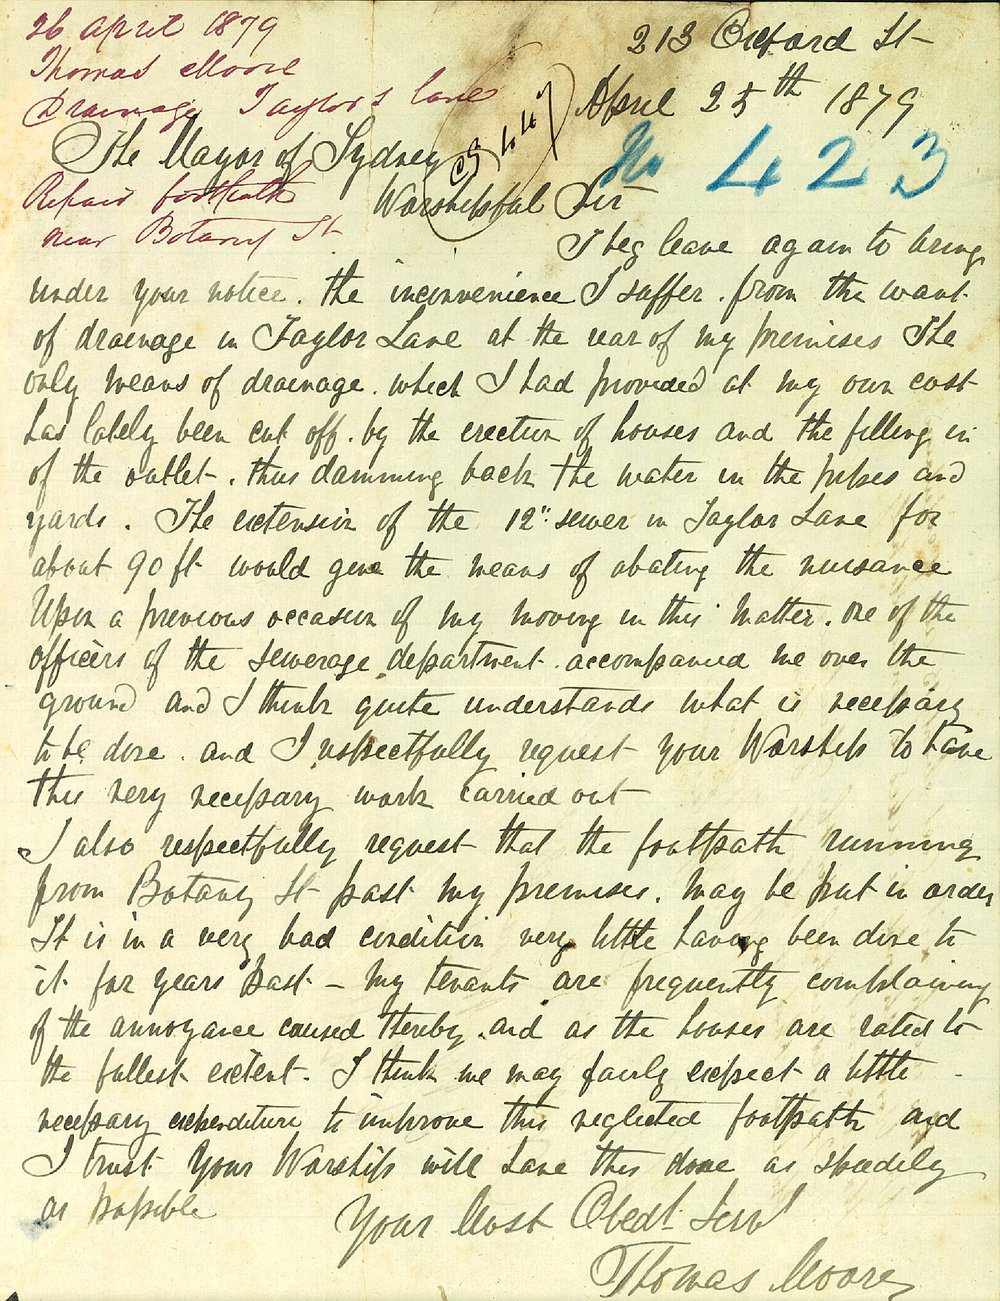 26 April 1879
Thomas Moore
Drainage Taylor's Lane
Repair footpath
near Botany St
213 Oxford St
April 25th 1879
No 423
The Mayor of Sydney
Worshipful Sir
I beg leave again to bring
under your notice. the inconvenience I suffer. from the want
of drainage in Taylor Lane at the rear of my premises The
only means of drainage. which I had provided at my own cost
has lately been cut off. by the erection of houses and the filling in
of the outlet. thus damming back the water in the pipes and
yards. The extension of the 12" sewer in Taylor Lane for
about 90 ft would give the means of abating the nuisance
Upon a previous occasion of my moving in this matter. one of the
officers of the sewerage department. accompanied me over the
ground and I think quite understands what is necessary
to be done. and I respectfully request your Worship to have
this very necessary work carried out
I also respectfully request that the footpath running
from Botany St past my premises. may be put in order
It is in a very bad condition very little having been done to
it for years past - My tenants are frequently complaining
of the annoyance caused thereby. and as the houses are rated to
the fullest extent. I think we may fairly expect a little
necessary expenditure to improve this neglected footpath and
I trust your Worship will have this done as speedily
as possible
Your Most Obedt Servt
Thomas Moore